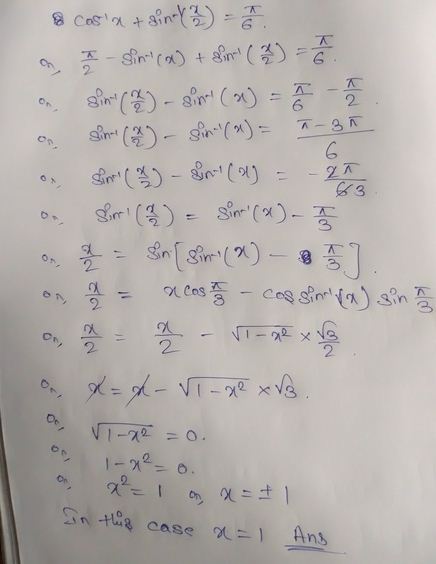 cos⁻¹x + sin⁻¹(x/2) = π/6.
or, π/2 - sin⁻¹(x) + sin⁻¹(x/2) = π/6.
or, sin⁻¹(x/2) - sin⁻¹(x) = π/6 - π/2.
or, sin⁻¹(x/2) - sin⁻¹(x) = (π-3π)/6
or, sin⁻¹(x/2) - sin⁻¹(x) = - 2π/63
or, sin⁻¹(x/2) = sin⁻¹(x) - π/3
or, x/2 = sin[sin⁻¹(x) - π/3].
or, x/2 = x cos π/3 - cos sin⁻¹(x) sin π/3
or, x/2 = x/2 - √(1-x²) × √3/2.
or, x = x - √(1-x²) × √3.
or, √(1-x²) = 0.
or, 1-x² = 0.
or, x² = 1 or, x = ± 1
In this case x = 1 Ans